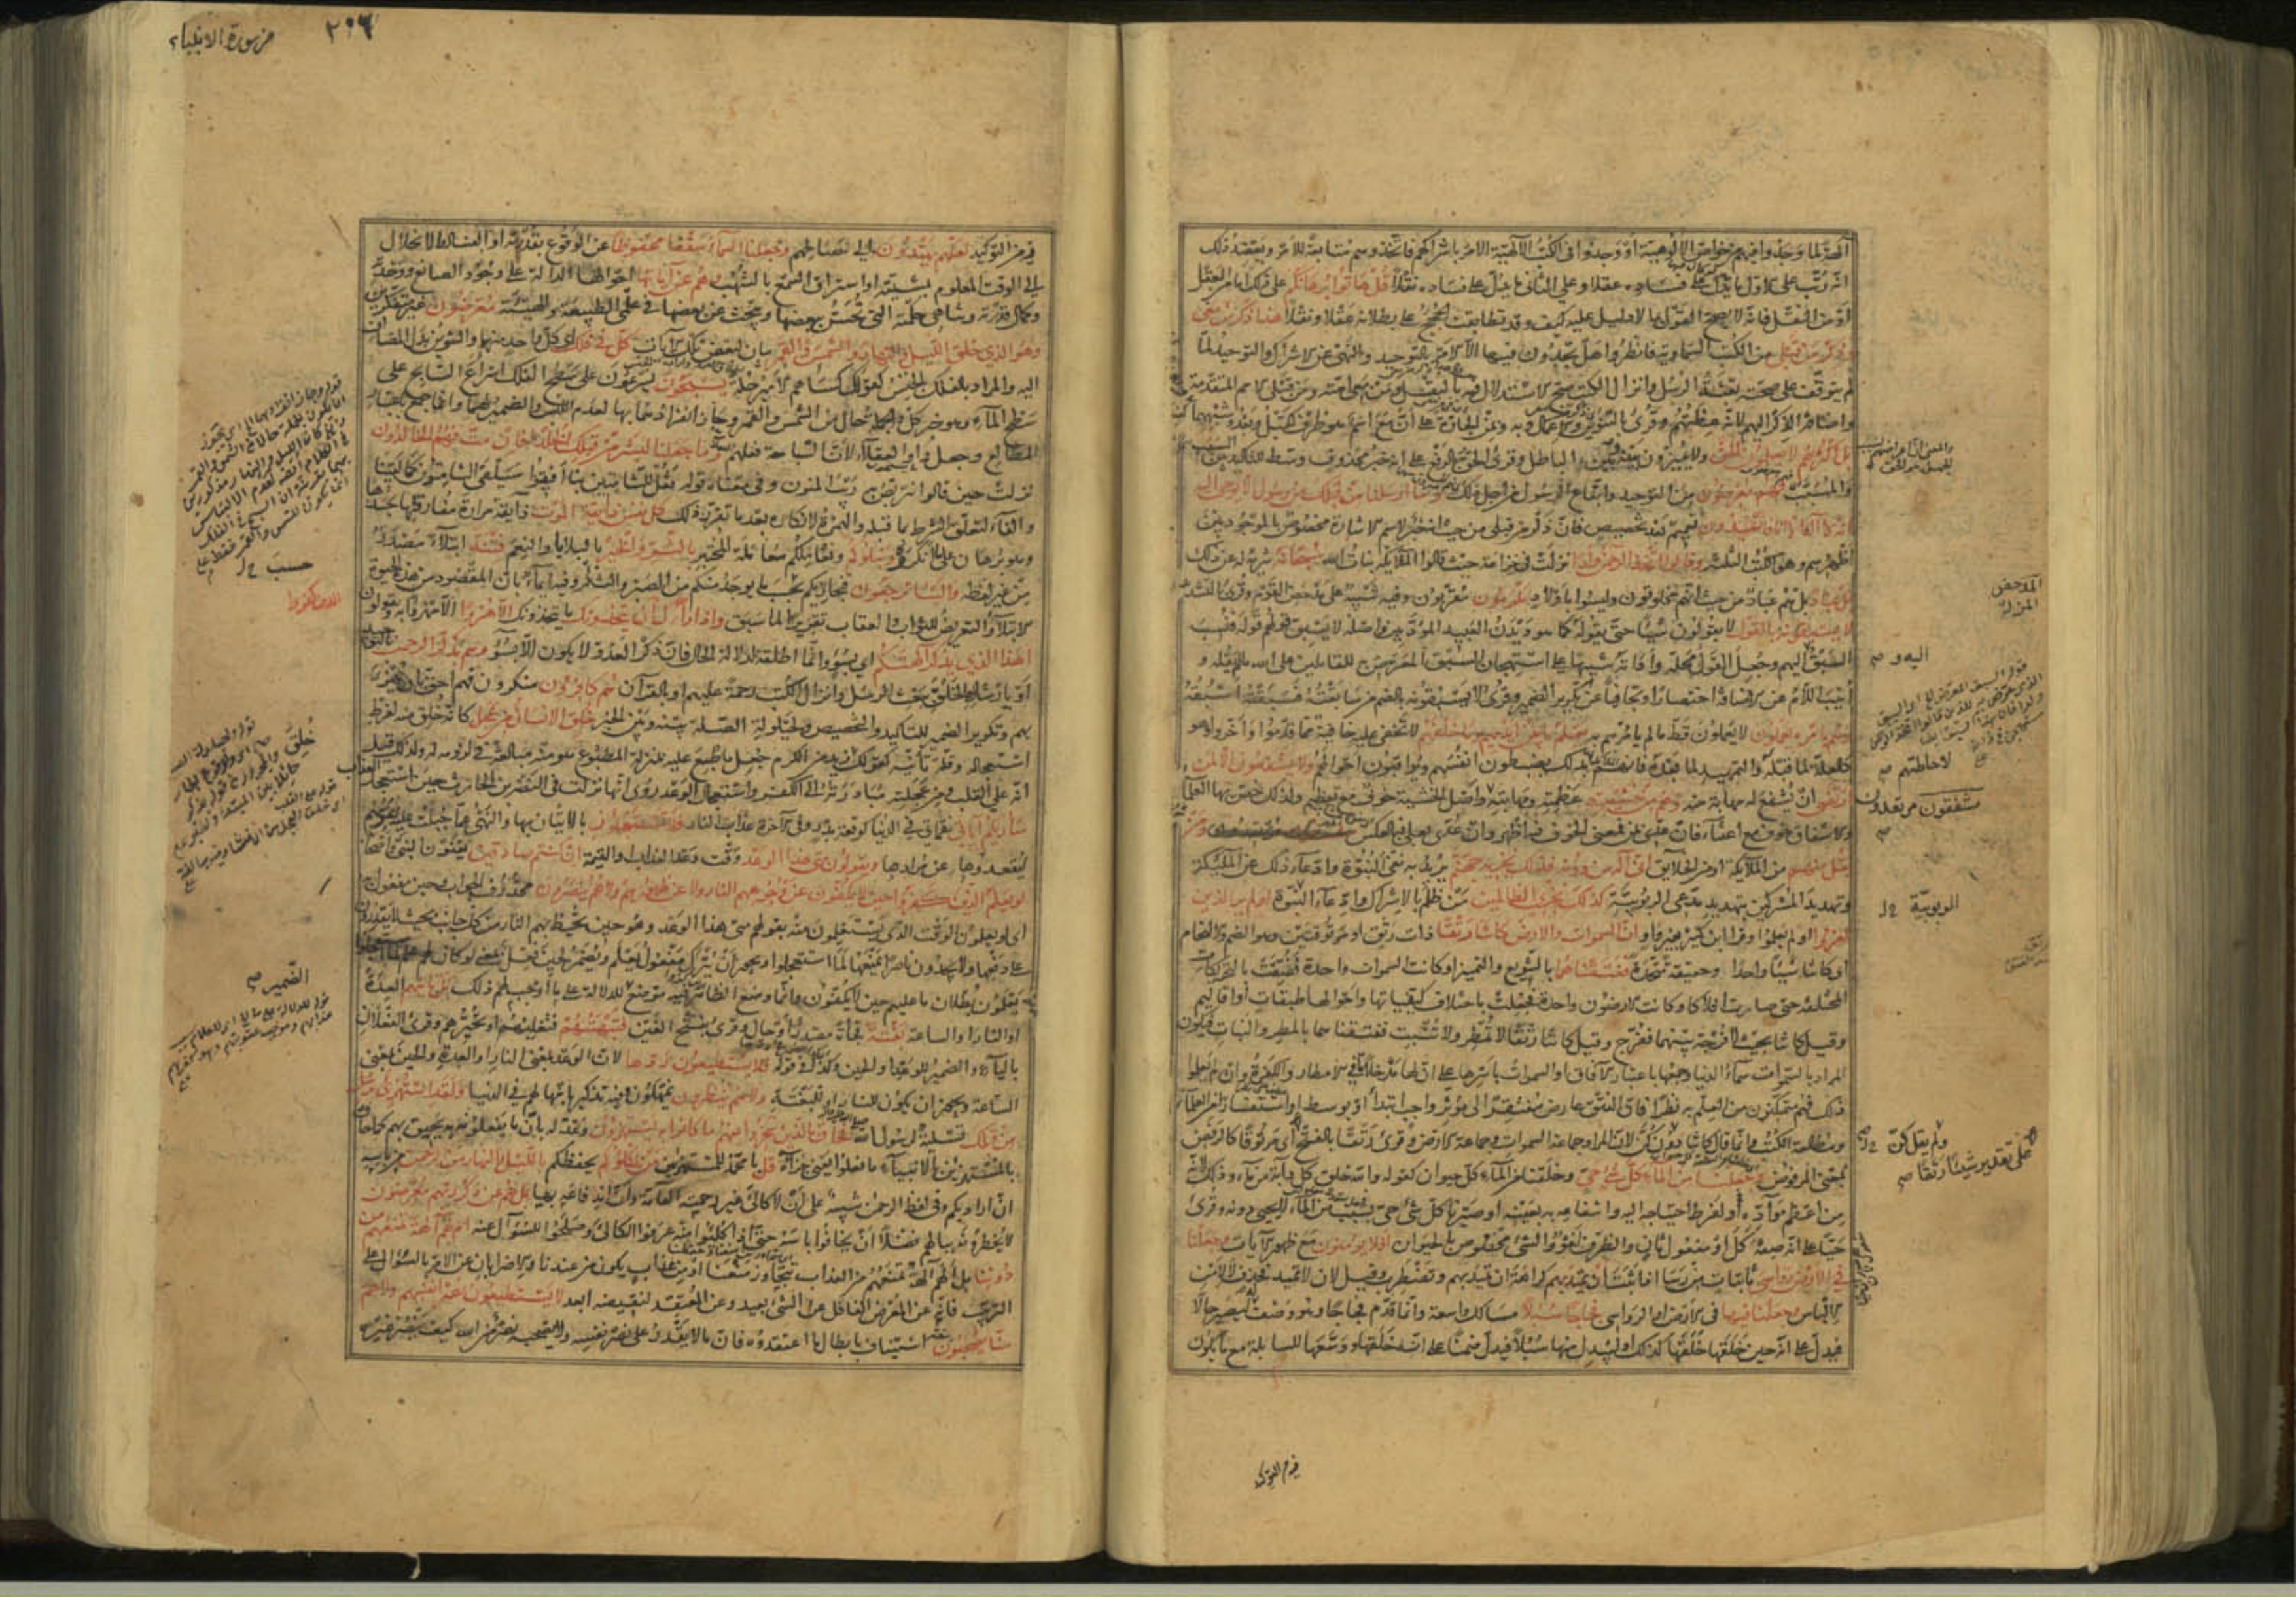 آلهة لما وجدوا فيهم من خواص الالوهية او وجدوا في الكتب الالهية الامر باشراكهم فاتخذوهم متابعة للامر ويعضد ذلك
انه رتب على الاول ما يدل على فساده عقلا وعلى الثاني ما يدل على فساده نقلا قل هاتوا برهانكم على ذلك اما من العقل
او من النقل فانه لا يصح القول بما لا دليل عليه كيف وقد تطابقت الحجج على بطلانه عقلا ونقلا هذا ذكر من معي
وذكر من قبلي من الكتب السماوية فانظروا هل تجدون فيها الا الامر بالتوحيد والنهي عن الاشراك والتوحيد لما
لم يتوقف على صحته بعثة الرسل وانزال الكتب صح الاستدلال فيه بالنقل ومن معي امته ومن قبلي الامم المتقدمة
واضافة الذكر اليهم لانه عظتهم وقرئ بالتنوين والاعمال وبه وعن الجارة على ان مع اسم هو ظرف كقبل وبعد وشبههما
بل اكثرهم لا يعلمون الحق ولا يميزون بينه وبين الباطل وقرئ الحق بالرفع على انه خبر محذوف وسط للتاكيد بين السبب
والمسبب فهم معرضون عن التوحيد واتباع الرسول من اجل ذلك وما ارسلنا من قبلك من رسول الا يوحى اليه
انه لا اله الا انا فاعبدون تعميم بعد تخصيص فان ذكر من قبلي من حيث انه خبر لاسم الاشارة مخصوص بالموجود بين
اظهرهم وهو الكتب الثلثة وقالوا اتخذ الرحمن ولدا نزلت في خزاعة حيث قالوا الملائكة بنات الله سبحانه تنزيه له عن ذلك
بل عباد بل هم عباد من حيث انهم مخلوقون وليسوا باولاد مكرمون مقربون وفيه تنبيه على مدحض القوم وقرئ بالتشديد
لا يسبقونه بالقول لا يقولون شيئا حتى يقوله كما هو ديدن العبيد المؤدبين واصله لا يسبق قولهم قوله فنسب
السبق اليهم وجعل القول محله واداته تنبيها على استهجان السبق المعرض به للقائلين على الله ما لم يقله و
انيب اللام عن الاضافة اختصارا وتجافيا عن تكرير الضمير وقرئ لا يسبقونه بالضم من سابقته فسبقته اسبقه
وهم بامره يعملون لا يعملون قط ما لم يامرهم به يعلم ما بين ايديهم وما خلفهم لا تخفى عليه خافية مما قدموا واخروا وهو
كالعلة لما قبله والتمهيد لما بعده فانهم بذلك يضبطون انفسهم ويراقبون احوالهم ولا يشفعون الا لمن
ارتضى ان يشفع له مهابة منه وهم من خشيته عظمته ومهابته واصل الخشية خوف مع تعظيم ولذلك خص بها العلماء
والاشفاق خوف مع اعتناء فان عدي بمن فمعنى الخوف فيه اظهر وان عدي بعلى فبالعكس ومن
يقل منهم من الملائكة او من الخلايق اني اله من دونه فذلك نجزيه جهنم يريد به نفي البنوة وادعاء ذلك عن الملائكة
وتهديد المشركين بتهديد مدعي الربوبية كذلك نجزي الظالمين من ظلم بالاشراك وادعاء البنوة اولم ير الذين
كفروا اولم يعلموا وقرأ ابن كثير بغير واو ان السموات والارض كانتا رتقا ذات رتق او مرتوقتين وهو الضم والالتحام
او كانتا شيئا واحدا وحقيقة متحدة ففتقناهما بالتنويع والتمييز او كانت السموات واحدة ففتقت بالتحريكات
المختلفة حتى صارت افلاكا وكانت الارضون واحدة فجعلت باختلاف كيفياتها واحوالها طبقات او اقاليم
وقيل كانتا بحيث لا فرجة بينهما ففرج وقيل كانتا رتقا لا تمطر ولا تنبت ففتقناهما بالمطر والنبات فيكون
المراد بالسموات سماء الدنيا وجمعها باعتبار الافاق او السموات باسرها على ان لها مدخلا ما في الامطار والكفرة وان لم يعلموا
ذلك فهم متمكنون من العلم به نظرا فان الفتق عارض مفتقر الى مؤثر واجب ابتداء او بوسط او استفسارا من العلماء
ومطالعة الكتب وانما قال كانتا ولم يقل كن لان المراد جماعة السموات وجماعة الارض وقرئ رتقا بالفتح اي مرتوقا كالرفض
بمعنى المرفوض وجعلنا من الماء كل شيء حي وخلقنا من الماء كل حيوان كقوله والله خلق كل دابة من ماء وذلك لانه
من اعظم مواده او لفرط احتياجه اليه وانتفاعه به بعينه او صيرنا كل شيء حي بسبب من الماء لا يحيى دونه وقرئ
حيا على انه صفة كل او مفعول ثان والظرف لغو والشيء مخصوص بالحيوان افلا يؤمنون مع ظهور الآيات وجعلنا
في الارض رواسي ثابتات من رسا اذا ثبت ان تميد بهم كراهة ان تميد بهم وتضطرب وقيل لان لا تميد فحذف لا لامن
الالباس وجعلنا فيها في الارض او الرواسي فجاجا سبلا مسالك واسعة وانما قدم فجاجا وهو وصف له ليصير حالا
فيدل على انه حين خلقها خلقها كذلك او ليبدل منها سبلا فيدل ضمنا على انه خلقها ووسعها للسابلة مع ما يكون
المدحض
المزلة
اليه و صح
لاحاطتهم صح
مشفقون مرتعدون
الربوبية
ولم يقل كن
على تقدير شيئا رتقا صح
فيه من التوكيد
من سورة الانبياء
٢٠٦
فيه من التوكيد لعلهم يهتدون الى مصالحهم وجعلنا السماء سقفا محفوظا عن الوقوع بقدرته او الفساد والانحلال
الى الوقت المعلوم بمشيته او استراق السمع بالشهب وهم عن آياتها احوالها الدالة على وجود الصانع ووحدته
وكمال قدرته وتناهي حكمته التي يحس ببعضها ويبحث عن بعضها في علمي الطبيعة والهيئة معرضون غير متفكرين
وهو الذي خلق الليل والنهار والشمس والقمر بيان لبعض تلك الآيات كل في فلك اي كل واحد منهما والتنوين بدل المضاف
اليه والمراد بالفلك الجنس كقولك كساهم الامير حلة يسبحون يسرعون على سطح الفلك اسراع السابح على
سطح الماء وهو خبر كل والجملة حال من الشمس والقمر وجاز انفرادهما بها لعدم اللبس والضمير لهما وانما جمع باعتبار
المطالع وجعل واو العقلاء لان السباحة فعلهم وما جعلنا لبشر من قبلك الخلد افان مت فهم الخالدون
نزلت حين قالوا نتربص به ريب المنون وفي معناه قوله فقل للشامتين بنا افيقوا سيلقى الشامتون كما لقينا
والفاء لتعلق الشرط بما قبله والهمزة لانكاره بعد ما تقرر ذلك كل نفس ذائقة الموت ذائقة مرارة مفارقتها جسدها
وهو برهان على ما انكروه ونبلوكم ونعاملكم معاملة المختبر بالشر والخير بالبلايا والنعم فتنة ابتلاء مصدر
من غير لفظه والينا ترجعون فنجازيكم بحسب ما يوجد منكم من الصبر والشكر وفيه ايماء بان المقصود من هذه الحيوة
الابتلاء والتعريض للثواب والعقاب تقريرا لما سبق واذا رآك الذين كفروا ان يتخذونك ما يتخذونك الا هزوا الا مهزوا به ويقولون
اهذا الذي يذكر آلهتكم اي بسوء وانما اطلقه لدلالة الحال فان ذكر العدو لا يكون الا بسوء وهم بذكر الرحمن بالتوحيد
او بارشاد الخلق ببعث الرسل وانزال الكتب رحمة عليهم او بالقرآن هم كافرون منكرون فهم احق بان يهزء
بهم وتكرير الضمير للتاكيد والتخصيص ولحيلولة الصلة بينه وبين الخبر خلق الانسان من عجل كانه خلق منه لفرط
استعجاله وقلة تأنيه كقولك خلق زيد من الكرم جعل ما طبع عليه بمنزلة المطبوع هو منه مبالغة في لزومه له ولذلك قيل
انه على القلب ومن عجلته مبادرته الى الكفر واستعجال الوعد روي انها نزلت في النضر بن الحارث حين استعجل العذاب
ساريكم آياتي نقماتي في الدنيا كوقعة بدر وفي الآخرة عذاب النار فلا تستعجلون بالاتيان بها والنهي عما جبلت عليه نفوسهم
ليقعدوها عن مرادها ويقولون متى هذا الوعد وقت وعد العذاب او القيمة ان كنتم صادقين يعنون النبي واصحابه
لو يعلم الذين كفروا حين لا يكفون عن وجوههم النار ولا عن ظهورهم ولا هم ينصرون محذوف الجواب وحين مفعول يعلم
اي لو يعلمون الوقت الذي يستعجلون منه بقولهم متى هذا الوعد وهو حين تحيط بهم النار من كل جانب بحيث لا يقدرون
على دفعها ولا يجدون ناصرا يمنعها لما استعجلوا ويجوز ان يترك مفعول يعلم ويضمر لحين فعل بمعنى لو كان لهم علم لما استعجلوا
يعلمون بطلان ما عليهم حين لا يكفون وانما وضع الظاهر فيه موضع للدلالة على ما اوجب لهم ذلك بل تأتيهم العدة
او النار او الساعة بغتة فجاة مصدر او حال وقرئ بفتح الغين فتبهتهم فتغلبهم او تحيرهم وقرئ الفعلان
بالياء والضمير للوعد او الحين وكذا في قوله فلا يستطيعون ردها لان الوعد بمعنى النار او العدة والحين بمعنى
الساعة ويجوز ان يكون للنار او للبغتة ولا هم ينظرون يمهلون وفيه تذكير بامهالهم في الدنيا ولقد استهزئ برسل
من قبلك تسلية لرسول الله فحاق بالذين سخروا منهم ما كانوا به يستهزؤن وعد له بان ما يفعلونه به يحيق بهم كما حاق
بالمستهزئين بالانبياء ما فعلوا يعني جزاءه قل يا محمد للمستهزئين من يكلؤكم يحفظكم بالليل والنهار من الرحمن من باسه
ان اراد بكم وفي لفظ الرحمن تنبيه على ان لا كالئ غير رحمته العامة وان اندفاعه بها بل هم عن ذكر ربهم معرضون
لا يخطرونه ببالهم فضلا ان يخافوا باسه حتى اذا كلئوا منه عرفوا الكالئ وصلحوا للسؤال عنه ام لهم آلهة تمنعهم من
دوننا بل الهم آلهة تمنعهم من العذاب تتجاوز منعنا او من عذاب يكون من عندنا والاضرابان عن الامر بالسؤال على
الترتيب فانه عن المعرض الغافل عن الشيء بعيد وعن المعتقد لنقيضه ابعد لا يستطيعون نصر انفسهم ولا هم
منا يصحبون استيناف بابطال ما اعتقدوه فان ما لا يقدر على نصر نفسه ولا يصحبه نصر من الله كيف ينصر غيره
حسب
الضمير صح